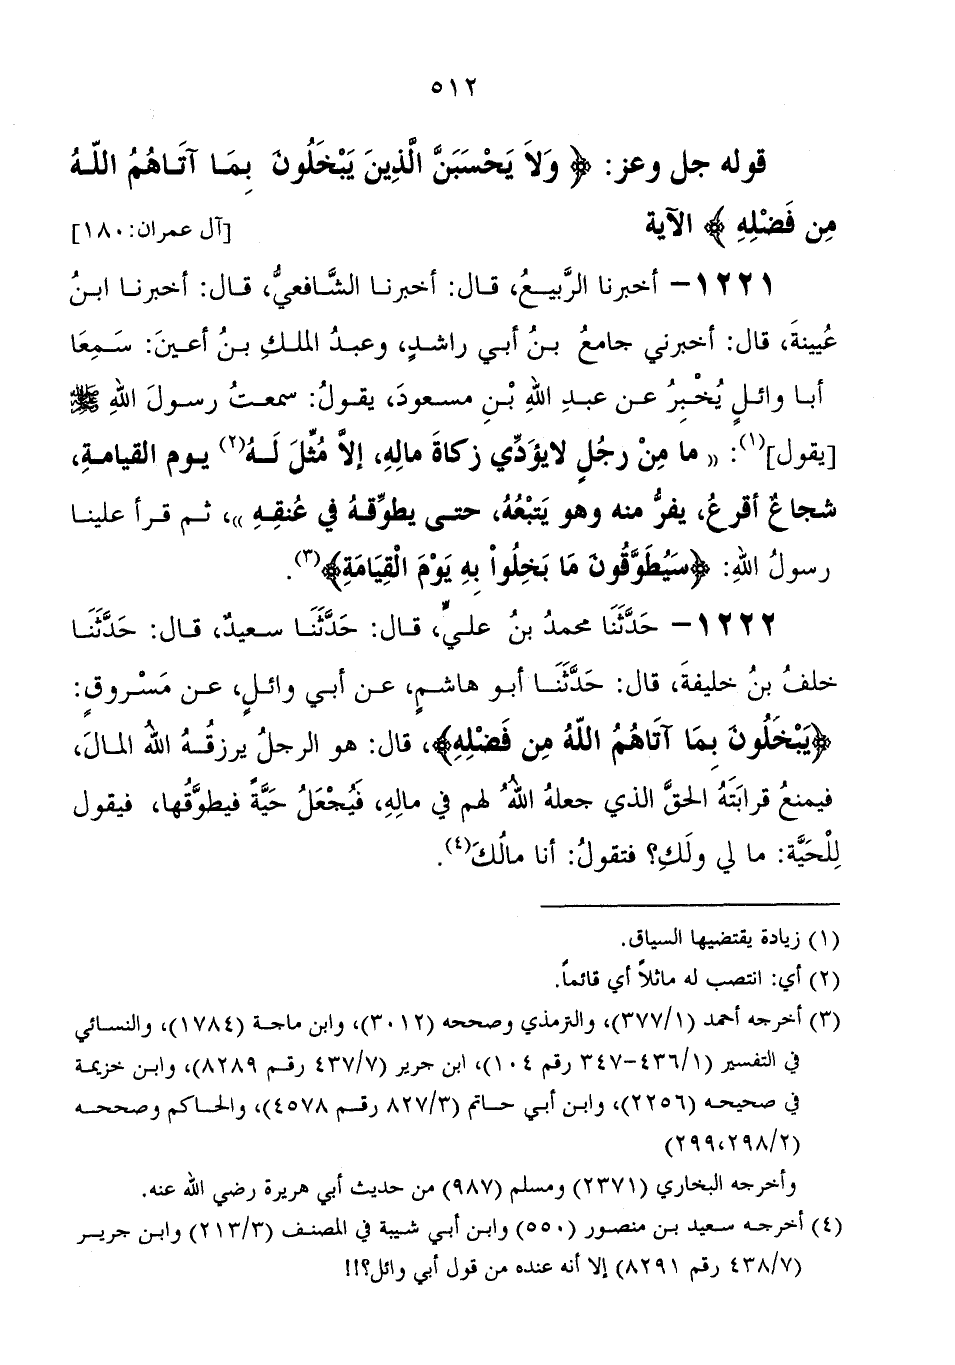 ٥١٢
قوله جل وعز: ﴿ وَلاَ يَحْسَبَنَّ الَّذِينَ يَبْخَلُونَ بِمَا آتَاهُمُ اللّهُ
مِن فَضْلِهِ ﴾ الآية [آل عمران: ١٨٠]
١٢٢١- أخبرنا الرَّبيعُ، قال: أخبرنا الشَّافعيُّ، قال: أخبرنا ابنُ
عُيينةَ، قال: أخبرني جامعُ بنُ أبي راشدٍ، وعبدُ الملكِ بنُ أعينَ: سَمِعَا
أبا وائلٍ يُخْبِرُ عن عبدِ اللهِ بْنِ مسعودَ، يقولُ: سمعتُ رسولَ اللهِ ﷺ
[يقول](١): « ما مِنْ رجُلٍ لايؤَدِّي زكاةَ مالِهِ، إلاَّ مُثِّلَ لَهُ(٢) يوم القيامةِ،
شجاعٌ أقرعُ، يفرُّ منه وهو يَتبْعُهُ، حتى يطوِّقهُ في عُنقِهِ »، ثم قرأ علينا
رسولُ اللهِ: ﴿سَيُطَوَّقُونَ مَا بَخِلُواْ بِهِ يَوْمَ الْقِيَامَةِ﴾(٣).
١٢٢٢- حَدَّثَنَا محمدُ بنُ عليٍّ، قال: حَدَّثَنَا سعيدٌ، قال: حَدَّثَنَا
خلفُ بنُ خليفةَ، قال: حَدَّثَنَا أبو هاشمٍ، عن أبي وائلٍ، عن مَسْروقٍ:
﴿يَبْخَلُونَ بِمَا آتَاهُمُ اللّهُ مِن فَضْلِهِ﴾، قال: هو الرجلُ يرزقُهُ اللهُ المالَ،
فيمنعُ قرابَتَهُ الحقَّ الذي جعلهُ اللهُ لهم في مالِهِ، فَيُجْعَلُ حَيَّةً فيطوَّقُها، فيقول
لِلْحَيَّة: ما لي ولَكِ؟ فتقولُ: أنا مالُكَ(٤).
(١) زيادة يقتضيها السياق.
(٢) أي: انتصب له ماثلاً أي قائماً.
(٣) أخرجه أحمد (٣٧٧/١)، والترمذي وصححه (٣٠١٢)، وابن ماجة (١٧٨٤)، والنسائي
في التفسير (٤٣٦/١-٣٤٧ رقم ١٠٤)، ابن جرير (٤٣٧/٧ رقم ٨٢٨٩)، وابن خزيمة
في صحيحه (٢٢٥٦)، وابن أبي حاتم (٨٢٧/٣ رقم ٤٥٧٨)، والحاكم وصححه
(٢٩٩،٢٩٨/٢)
وأخرجه البخاري (٢٣٧١) ومسلم (٩٨٧) من حديث أبي هريرة رضي الله عنه.
(٤) أخرجه سعيد بن منصور (٥٥٠) وابن أبي شيبة في المصنف (٢١٣/٣) وابن جرير
(٤٣٨/٧ رقم ٨٢٩١) إلا أنه عنده من قول أبي وائل؟!!